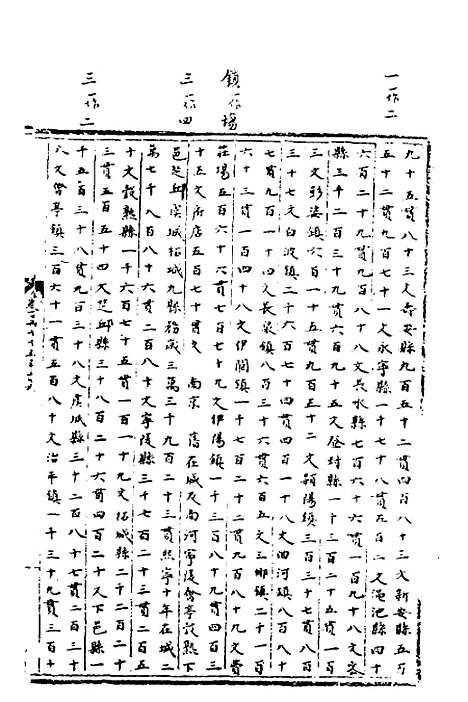 一作二
鎮一作場
三一作四
三一作二
九十五貫八十三文壽安縣九百五十二貫四百八十三文新安縣五百
五十二貫九百七十一文永寧縣一千七十八貫五百二文澠池縣四十
六百二十九貫九百八十八文長水縣七百四十六貫一百九十八文
縣三千二百三十九貫六百九十五文登封縣一千三百二十五貫一百
三文彭婆鎮六百一十五貫九百三十二文潁陽鎮三百三十七貫八百
三十七文白波鎮二千六百七十四貫四百一十八文曲河鎮八百八十
七貫九百一十四文長泉鎮八百三十六貫六百五文三鄉鎮二千一百
六十三貫一百四十八文伊闕鎮一千七百二十二貫九百八十九文費
莊場五百六十六貫七百七十九文伊陽鎮一千三百八十九貫四百三
十五文府店五百七十貫文 南京 舊在城及南河寧陵會亭穀熟下
邑楚丘虞城柘城九縣務歲三萬三千九百二十三貫熙寧十年在城二
萬七千八百八十六貫二百八十文寧陵縣三千七百二十三貫二百五
十文穀熟縣一千六百七十五貫一百一十九文柘城縣二千二百二十
三貫五百五十四文楚邱縣三千八百二十六貫四百二十文下邑縣一
千五百三十八貫九百三十八文虞城縣三千二百八十七貫二百三十
八文會亭鎮三百六十一貫五百八十文治平鎮一千三十九貫三百十